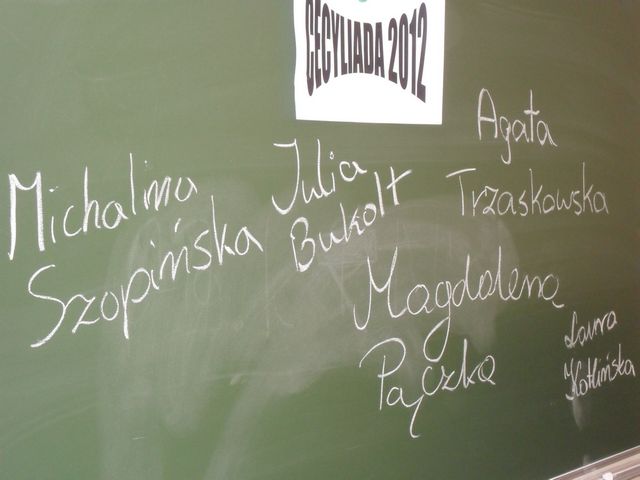 CECYLIADA 2012
Michalina
Szopińska
Julia
Bukolt
Agata
Trzaskowska
Magdalena
Pączka
Laura
Kotlińska